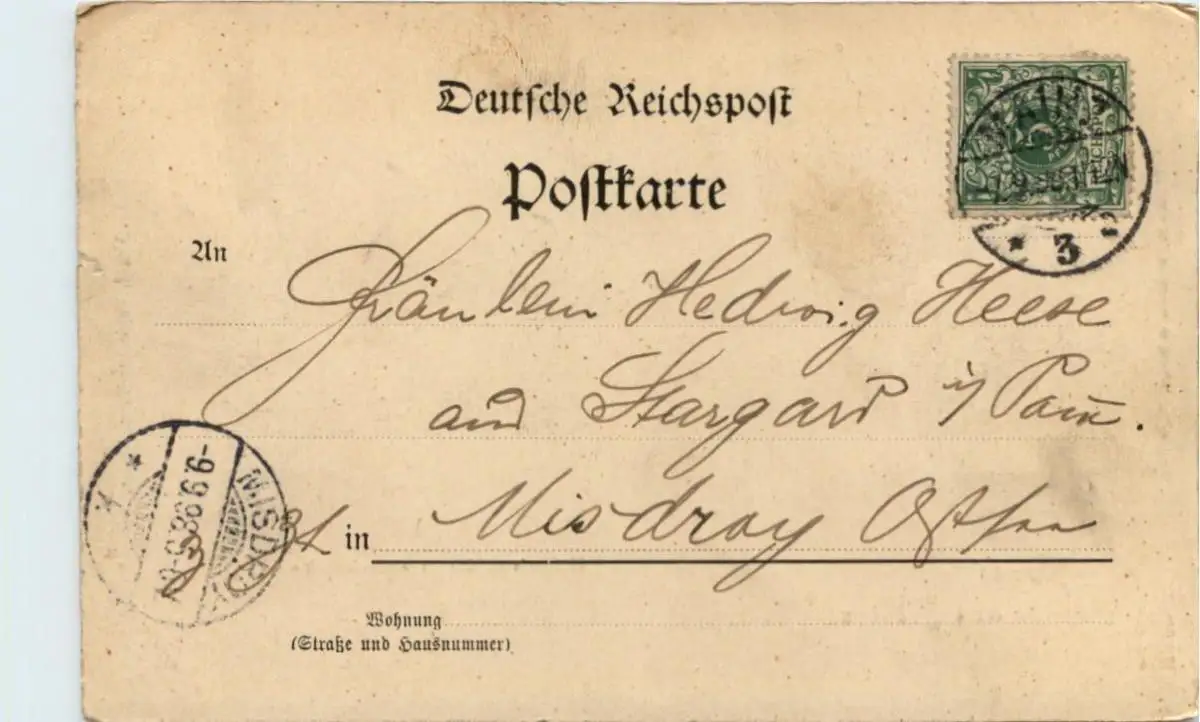 Deutsche Reichspost
Postkarte
An
Fräulein Hedwig Heese
aus Stargard i/ Pom.
z. Zt. in Misdroy Ostsee
Wohnung
(Straße und Hausnummer)
* 3 *
MISDR